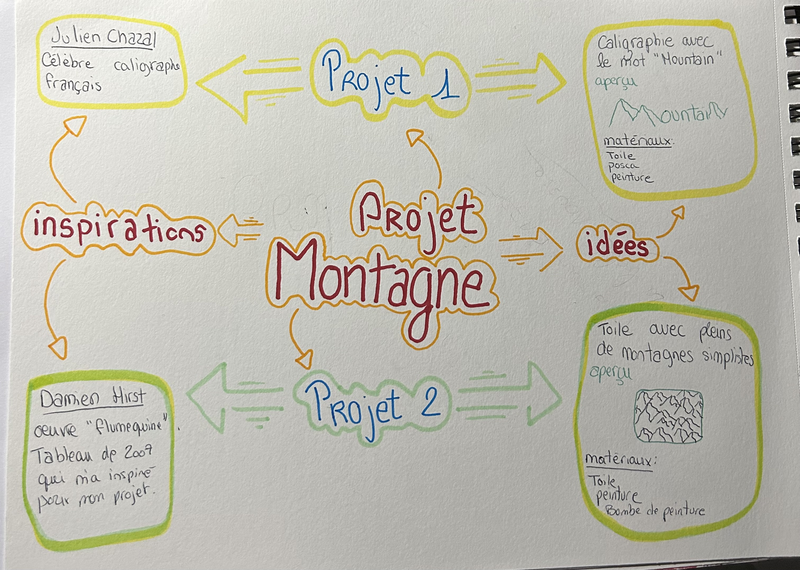 Julien Chazal
Célèbre caligraphe
français
Projet 1
Caligraphie avec
le mot "Mountain"
aperçu
Mountain
matériaux:
Toile
posca
peinture
inspirations
Projet
Montagne
idées
Damien Hirst
oeuvre "flumequine".
Tableau de 2007
qui m'a inspiré
pour mon projet.
Projet 2
Toile avec pleins
de montagnes simplistes
aperçu
matériaux:
Toile
peinture
Bombe de peinture